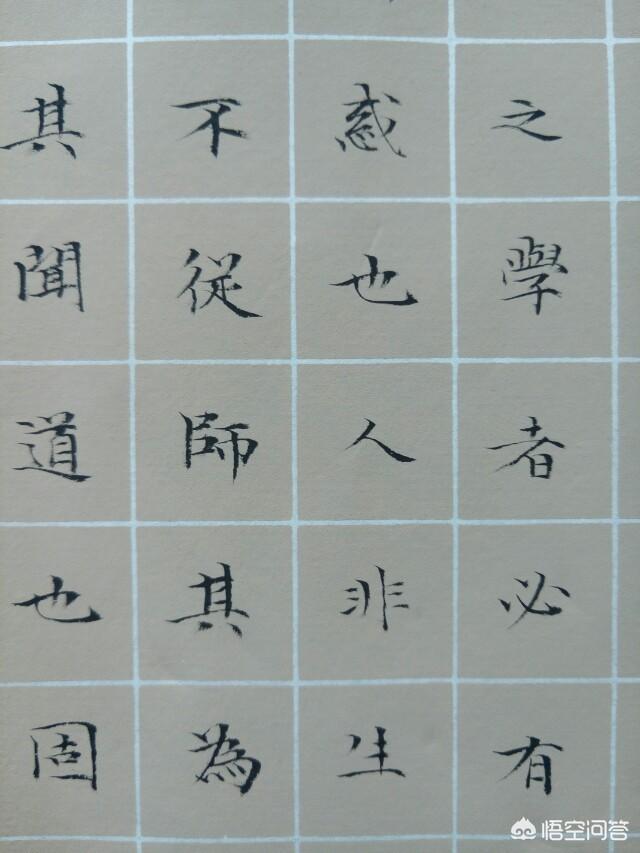 之學者必有
惑也人非生
不從師其為
其聞道也固
悟空问答